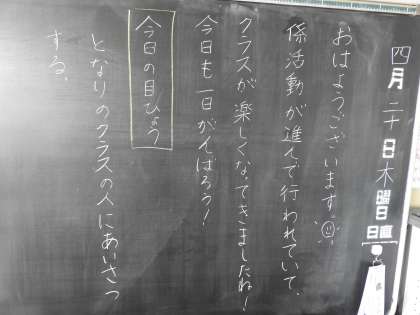 四月二十日木曜日
日直
おはようございます
係活動が進んで行われていて、
クラスが楽しくなてきましたね！
今日も一日がんばろう！
今日の目ひょう
となりのクラスの人にあいさつ
する。